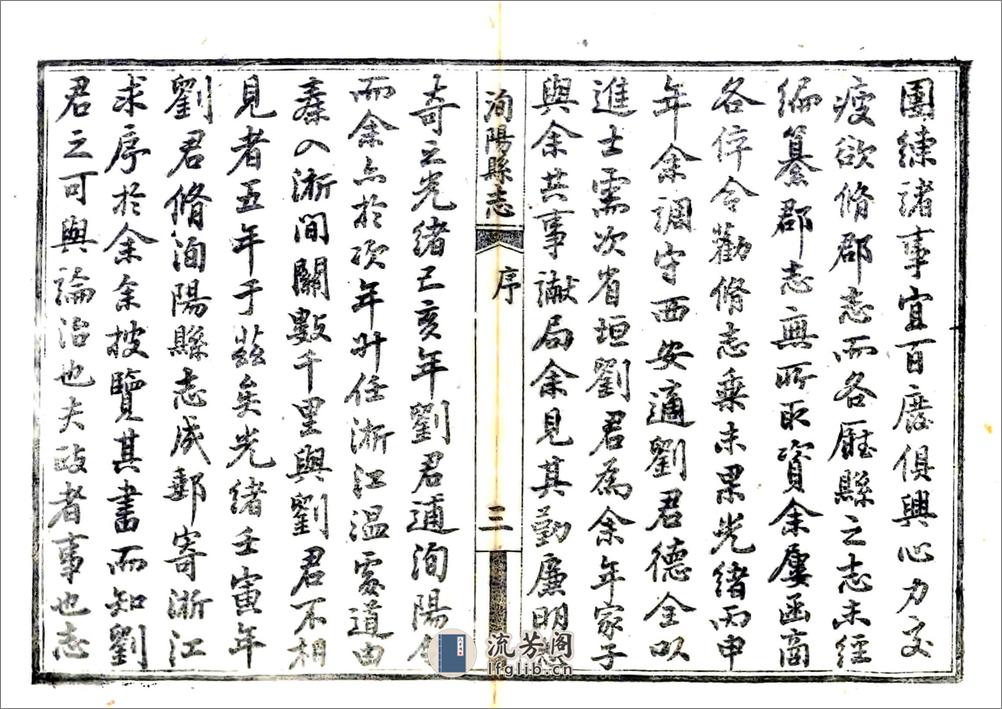 團練諸事宜百廢俱興心力交
瘦欲脩郡志而各廳縣之志未經
編纂郡志無所取資余屢函商
各倅令勸脩志乘未果光緒丙申
年余調守西安適劉君德全以
進士需次省垣劉君為余年家子
與余共事讞局余見其勤廉明
洵陽縣志
序
三
奇之光緒己亥年劉君補洵陽令
而余亦於次年升任浙江溫處道由
秦入浙間關數千里與劉君不相
見者五年于茲矣光緒壬寅年
劉君脩洵陽縣志成郵寄浙江
求序於余余披覽其書而知劉
君之可與論治也夫政者事也志
流芳阁
lfglib.cn